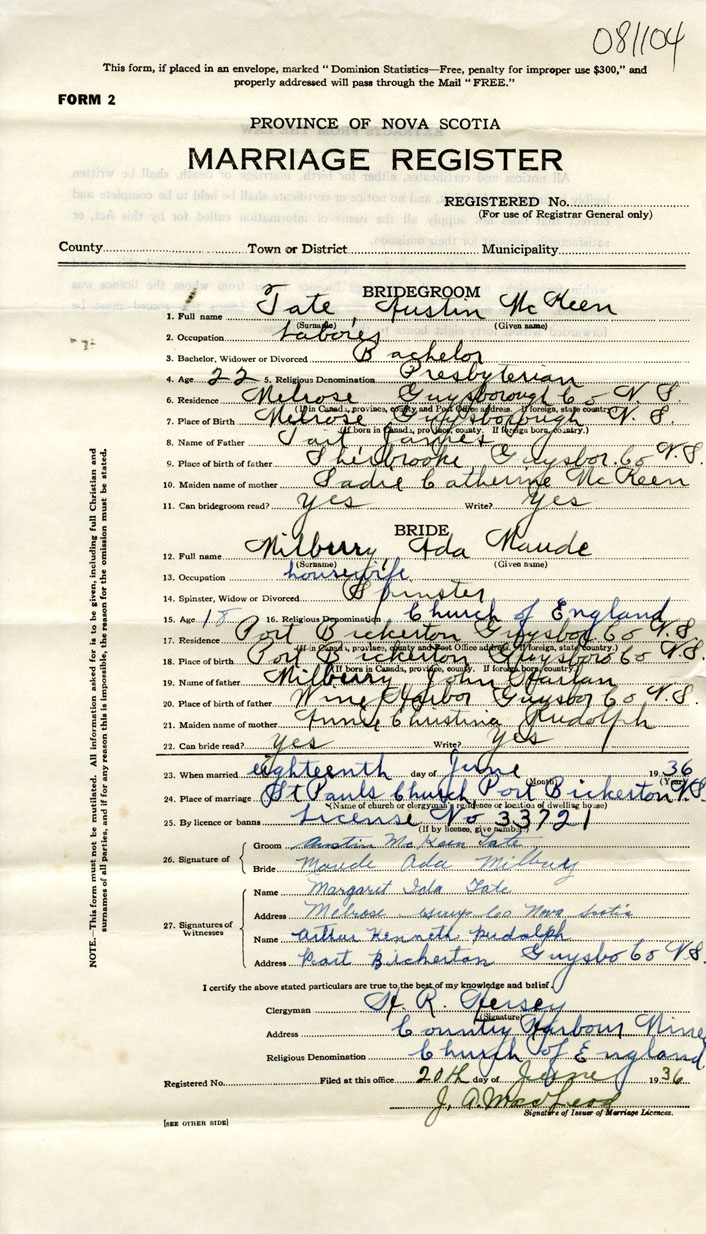 081104
This form, if placed in an envelope, marked "Dominion Statistics—Free, penalty for improper use $300," and
properly addressed will pass through the Mail "FREE."
FORM 2
PROVINCE OF NOVA SCOTIA
MARRIAGE REGISTER
REGISTERED No.
(For use of Registrar General only)
County Town or District Municipality
BRIDEGROOM
1. Full name Tate, Austin McKeen
(Surname) (Given name)
2. Occupation Laborer
3. Bachelor, Widower or Divorced Bachelor
4. Age 22 5. Religious Denomination Presbyterian
6. Residence Melrose Guysborough Co N.S.
(If in Canada, province, county and Post Office address. If foreign, state country)
7. Place of Birth Melrose Guysborough N.S.
(If born in Canada, province, county. If foreign born, country.)
8. Name of Father James
9. Place of birth of father Sherbrooke Guysbor. Co N.S.
10. Maiden name of mother Sadie Catherine McKeen
11. Can bridegroom read? Yes Write? Yes
BRIDE
12. Full name Milberry, Ada Maude
(Surname) (Given name)
13. Occupation housewife
14. Spinster, Widow or Divorced Spinster
15. Age 18 16. Religious Denomination Church of England
17. Residence Port Bickerton Guysbor Co N.S.
(If in Canada, province, county and Post Office address. If foreign, state country.)
18. Place of birth Port Bickerton Guysboro Co N.S.
(If born in Canada, province, county. If foreign born, country.)
19. Name of father Milberry John Harlan
20. Place of birth of father Wine Harbor Guysbor Co N.S.
21. Maiden name of mother Annie Christina Rudolph
22. Can bride read? Yes Write? Yes
23. When married eighteenth day of June 1936
(Month) (Year)
24. Place of marriage St Pauls Church Port Bickerton N.S.
(Name of church or clergyman's residence or location of dwelling house)
25. By licence or banns License No 33721
(If by licence, give number)
26. Signature of
Groom Austin McKeen Tate
Bride Maude Ada Milbury
27. Signatures of Witnesses
Name Margaret Ida Tate
Address Melrose Guys Co Nova Scotia
Name Arthur Kenneth Rudolph
Address Port Bickerton Guysbo Co N.S.
I certify the above stated particulars are true to the best of my knowledge and belief.
Clergyman H. R. Hersey
(Signature)
Address Country Harbour Mine
Religious Denomination Church of England
Registered No. Filed at this office 20th day of June 1936
J. A. MacLeod
Signature of Issuer of Marriage Licences.
[SEE OTHER SIDE]
NOTE.—This form must not be mutilated. All information asked for is to be given, including full Christian and
surnames of all parties, and if for any reason this is impossible, the reason for the omission must be stated.